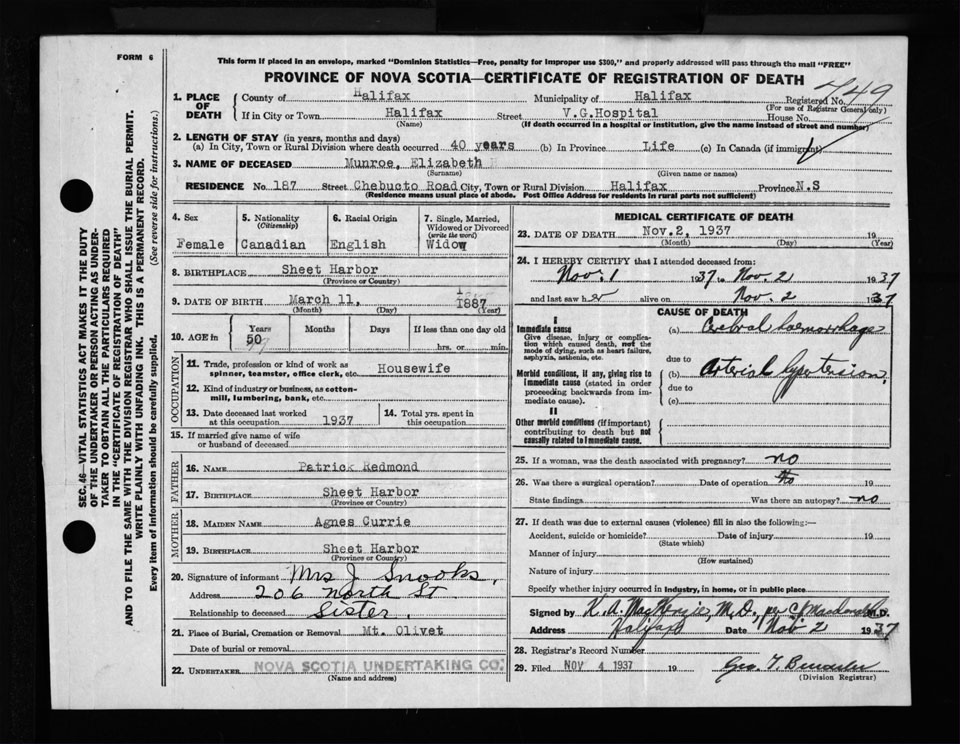 FORM 6
This form if placed in an envelope, marked "Dominion Statistics—Free, penalty for improper use $300," and properly addressed will pass through the mail "FREE"
PROVINCE OF NOVA SCOTIA—CERTIFICATE OF REGISTRATION OF DEATH
749
1. PLACE OF DEATH
County of Halifax Municipality of Halifax Registered No.
(For use of Registrar General only)
If in City or Town Halifax Street V.G.Hospital House No.
(Name) (If death occurred in a hospital or institution, give the name instead of street and number)
2. LENGTH OF STAY (in years, months and days)
(a) In City, Town or Rural Division where death occurred 40 years (b) In Province Life (c) In Canada (if immigrant)
3. NAME OF DECEASED Munroe, Elizabeth H
(Surname) (Given name or names)
RESIDENCE No. 187 Street Chebucto Road City, Town or Rural Division Halifax Province N.S
(Residence means usual place of abode. Post Office Address for residents in rural parts not sufficient)
4. Sex
Female
5. Nationality
(Citizenship)
Canadian
6. Racial Origin
English
7. Single, Married, Widowed or Divorced
(write the word)
Widow
8. BIRTHPLACE Sheet Harbor
(Province or Country)
9. DATE OF BIRTH March 11, 1887
(Month) (Day) (Year)
10. AGE in
Years Months Days If less than one day old
50
hrs. or min.
OCCUPATION
11. Trade, profession or kind of work as spinner, teamster, office clerk, etc. Housewife
12. Kind of industry or business, as cotton-mill, lumbering, bank, etc.
13. Date deceased last worked at this occupation 1937
14. Total yrs. spent in this occupation
15. If married give name of wife or husband of deceased
FATHER
16. NAME Patrick Redmond
17. BIRTHPLACE Sheet Harbor
(Province or Country)
MOTHER
18. MAIDEN NAME Agnes Currie
19. BIRTHPLACE Sheet Harbor
(Province or Country)
20. Signature of informant Mrs J Snooks,
Address 206 North St
Relationship to deceased Sister
21. Place of Burial, Cremation or Removal Mt. Olivet
Date of burial or removal
22. UNDERTAKER NOVA SCOTIA UNDERTAKING CO.
(Name and address)
MEDICAL CERTIFICATE OF DEATH
23. DATE OF DEATH Nov.2, 1937 19
(Month) (Day) (Year)
24. I HEREBY CERTIFY that I attended deceased from:
Nov. 1 1937 to Nov. 2 1937
and last saw her alive on Nov. 2 1937
CAUSE OF DEATH
I
Immediate cause
Give disease, injury or complication which caused death, not the mode of dying, such as heart failure, asphyxia, asthenia, etc.
(a) Cerebral haemorrhage
due to
Morbid conditions, if any, giving rise to immediate cause (stated in order proceeding backwards from immediate cause).
(b) Arterial hypertension,
due to
(c)
II
Other morbid conditions (if important) contributing to death but not causally related to immediate cause.
25. If a woman, was the death associated with pregnancy? no
26. Was there a surgical operation? Date of operation no 19
State findings Was there an autopsy? no
27. If death was due to external causes (violence) fill in also the following:—
Accident, suicide or homicide? Date of injury 19
(State which)
Manner of injury
(How sustained)
Nature of injury
Specify whether injury occurred in industry, in home, or in public place
Signed by K. A. MacKenzie, M.D., per M.D.
Address Halifax Date Nov 2 1937
28. Registrar's Record Number
29. Filed NOV 4 1937 19 Geo. T.
(Division Registrar)
SEC. 46—VITAL STATISTICS ACT MAKES IT THE DUTY
OF THE UNDERTAKER OR PERSON ACTING AS UNDER-
TAKER TO OBTAIN ALL THE PARTICULARS REQUIRED
IN THE "CERTIFICATE OF REGISTRATION OF DEATH"
AND TO FILE THE SAME WITH THE DIVISION REGISTRAR WHO SHALL ISSUE THE BURIAL PERMIT.
WRITE PLAINLY WITH UNFADING INK. THIS IS A PERMANENT RECORD.
Every item of information should be carefully supplied. (See reverse side for instructions.)